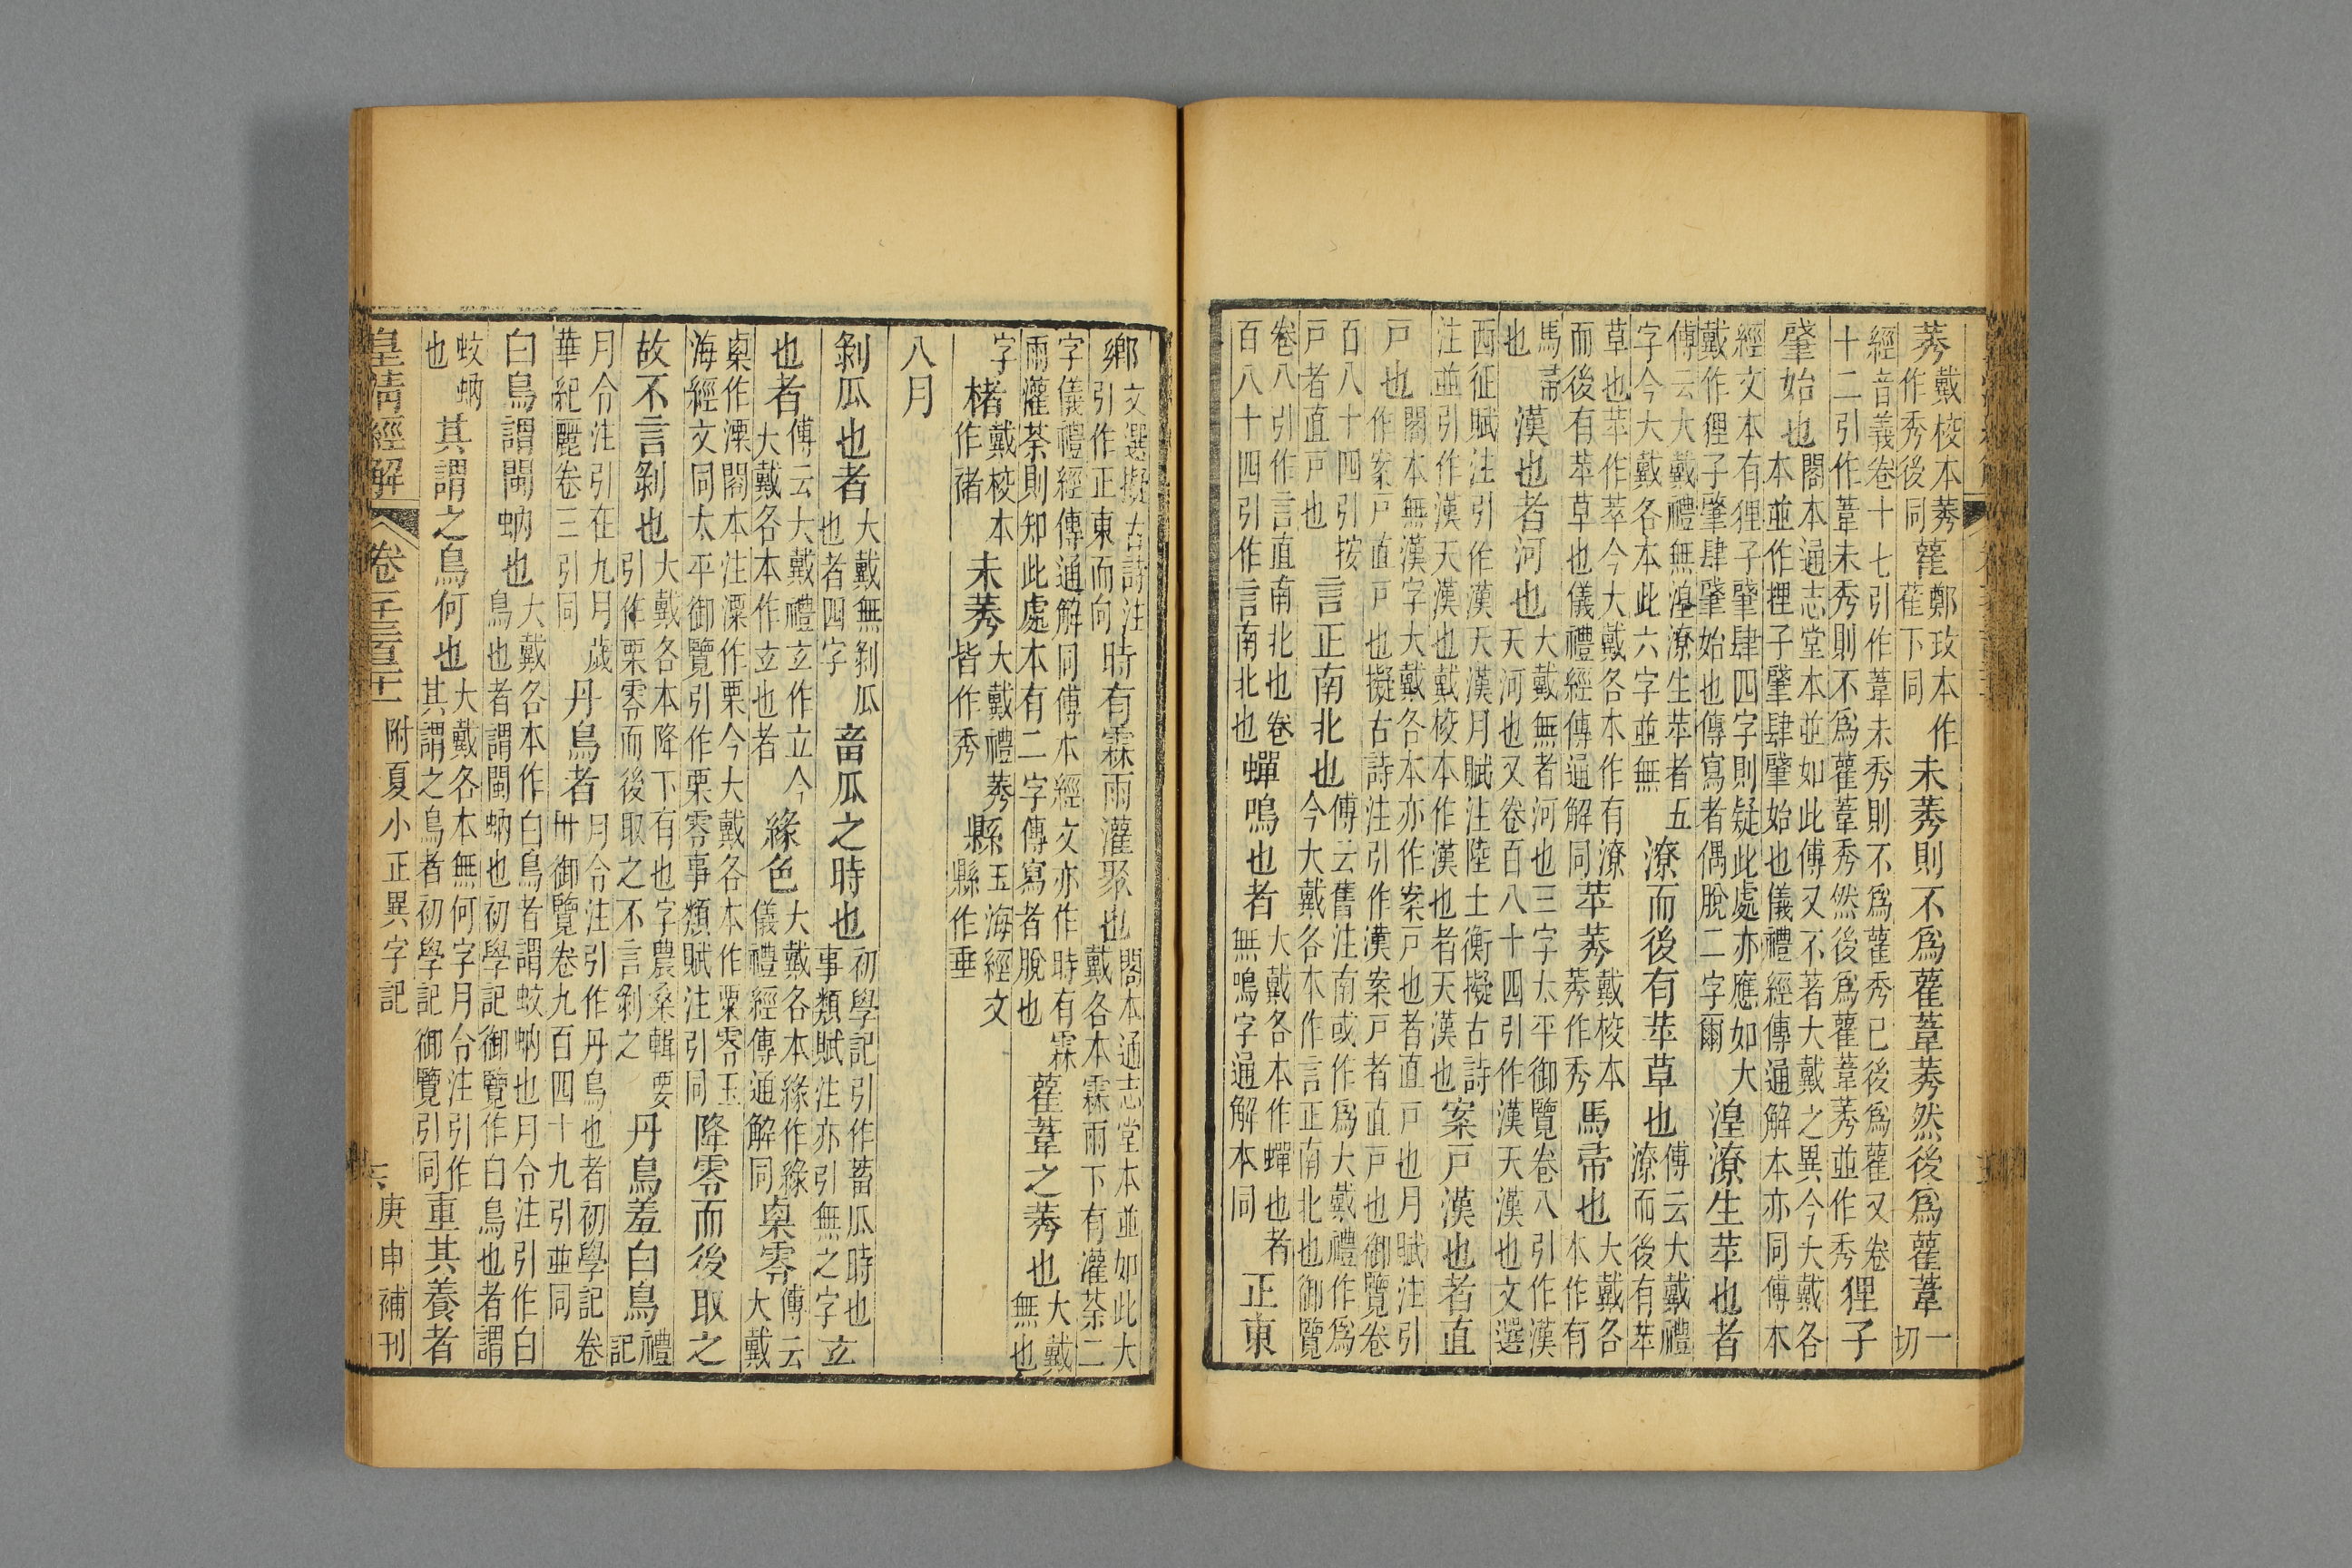 莠戴校本莠作秀後同雚鄭攷本作萑下同未莠則不爲雚葦莠然後爲雚葦一切
經音義卷十七引作葦未秀則不爲雚秀已後爲雚又卷十二引作葦未秀則不爲雚葦秀然後爲雚葦莠並作秀狸子
肇始也閣本通志堂本並如此傳又不著大戴之異今大戴各本並作狸子肇肆肇始也儀禮經傳通解本亦同傳本
經文本有狸子肇肆四字則疑此處亦應如大戴作狸子肇肆肇始也傳寫者偶脫二字爾湟潦生苹也者
傅云大戴禮無湟潦生苹者五字今大戴各本此六字並無潦而後有苹草也傅云大戴禮潦而後有萃
草也苹作萃今大戴各本作有潦而後有苹草也儀禮經傳通解同苹莠戴校本莠作秀馬帚也大戴各本作有
馬帚也漢也者河也大戴無者河也三字太平御覽卷八引作漢天河也又卷百八十四引作漢天漢也文選
西征賦注引作漢天漢月賦注陸士衡擬古詩注並引作漢天漢也戴校本作漢也者天漢也案戸漢也者直
戸也閣本無漢字大戴各本亦作案戸也者直戸也月賦注引作案戸直戸也擬古詩注引作漢案戸者直戸也御覽卷
百八十四引戸者直戸也按言正南北也傅云舊注南或作爲大戴禮作爲今大戴各本作言正南北也御覽
卷八引作言直南北也卷百八十四引作言南北也蟬鳴也者大戴各本作蟬也者無鳴字通解本同正東
鄉文選擬古詩注引作正東而向時有霖雨灌聚也閣本通志堂本並如此大戴各本霖雨下有灌荼二
字儀禮經傳通解同傅本經文亦作時有霖雨灌荼則知此處本有二字傳寫者脫也雚葦之莠也大戴無也
字楮戴校本作禇未莠大戴禮莠皆作秀縣玉海經文縣作垂
八月
剝瓜也者大戴無剝瓜也者四字畜瓜之時也初學記引作蓄瓜時也事類賦注亦引無之字玄
也者傅云大戴禮玄作立今大戴各本作玄也者緣色大戴各本緣作綠儀禮經傳通解同㮚零傅云大戴
㮚作潀閣本注潀作栗今大戴各本作粟零玉海經文同太平御覽引作栗零事類賦注引同降零而後取之
故不言剝也大戴各本降下有也字農桑輯要引作栗零而後取之不言剝之丹鳥羞白鳥禮記
月令注引在九月歲華紀麗卷三引同丹鳥者月令注引作丹鳥也者初學記卷卅御覽卷九百四十九引並同
白鳥謂閩蚋也大戴各本作白鳥者謂蚊蚋也月令注引作白鳥也者謂閩蚋也初學記御覽作白鳥也者謂
蚊蚋也其謂之鳥何也大戴各本無何字月令注引作其謂之鳥者初學記御覽引同重其養者
皇清經解 卷三百二十二 附夏小正異字記 庚申補刊